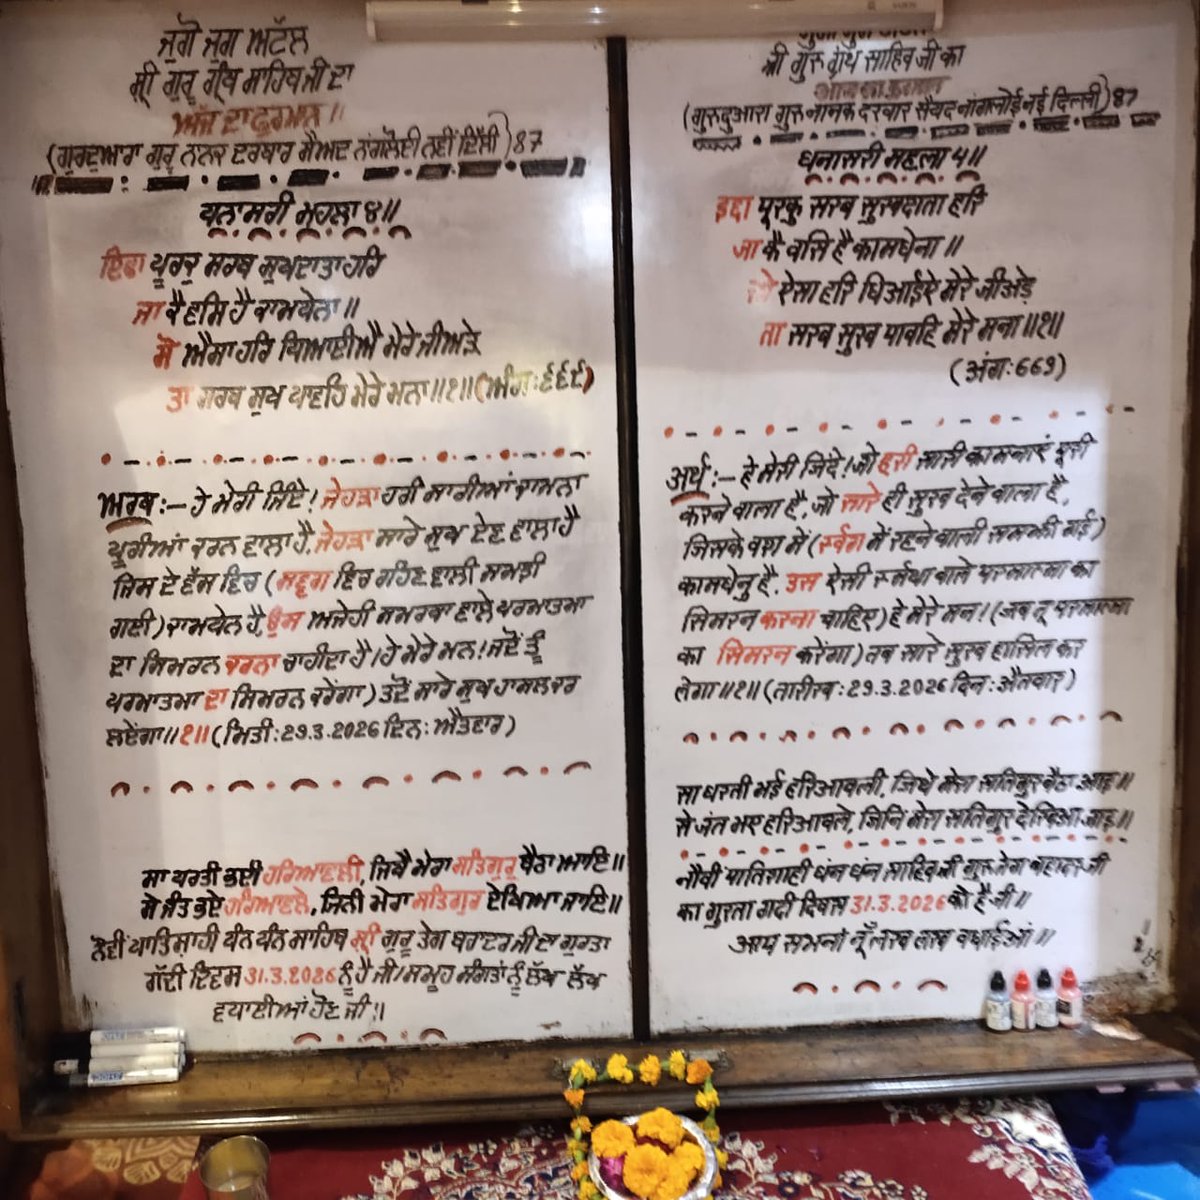 ਜੁਗੋ ਜੁਗ ਅਟੱਲ
ਸ੍ਰੀ ਗੁਰੂ ਗ੍ਰੰਥ ਸਾਹਿਬ ਜੀ ਦਾ
ਅੱਜ ਦਾ ਫੁਰਮਾਨ ॥
(ਗੁਰਦੁਆਰਾ ਗੁਰੂ ਨਾਨਕ ਦਰਬਾਰ ਸੈਅਦ ਨਾਂਗਲੋਈ ਨਵੀਂ ਦਿੱਲੀ) 87
ਧਨਾਸਰੀ ਮਹਲਾ ੪॥
ਇਛਾ ਪੂਰਕੁ ਸਰਬ ਸੁਖਦਾਤਾ ਹਰਿ
ਜਾ ਕੈ ਵਸਿ ਹੈ ਕਾਮਧੇਨਾ ॥
ਸੋ ਐਸਾ ਹਰਿ ਧਿਆਈਐ ਮੇਰੇ ਜੀਅੜੇ
ਤਾ ਸਰਬ ਸੁਖ ਪਾਵਹਿ ਮੇਰੇ ਮਨਾ ॥੧॥ (ਅੰਗ: ੬੬੯)
ਅਰਥ :– ਹੇ ਮੇਰੀ ਜਿੰਦੇ! ਜੇਹੜਾ ਹਰੀ ਸਾਰੀਆਂ ਕਾਮਨਾ
ਪੂਰੀਆਂ ਕਰਨ ਵਾਲਾ ਹੈ, ਜੇਹੜਾ ਸਾਰੇ ਸੁਖ ਦੇਣ ਵਾਲਾ ਹੈ
ਜਿਸ ਦੇ ਵੱਸ ਵਿਚ (ਸਵ੍ਰਗ ਵਿਚ ਰਹਿਣ ਵਾਲੀ ਸਮਝੀ
ਗਈ) ਕਾਮਧੇਨ ਹੈ, ਉਸ ਅਜੇਹੀ ਸਮਰਥਾ ਵਾਲੇ ਪਰਮਾਤਮਾ
ਦਾ ਸਿਮਰਨ ਕਰਨਾ ਚਾਹੀਦਾ ਹੈ। ਹੇ ਮੇਰੇ ਮਨ! ਜਦੋਂ ਤੂੰ
ਪਰਮਾਤਮਾ ਦਾ ਸਿਮਰਨ ਕਰੇਂਗਾ) ਤਦੋਂ ਸਾਰੇ ਸੁਖ ਹਾਸਲ ਕਰ
ਲਏਂਗਾ ॥੧॥ (ਮਿਤੀ : 29.3.2026 ਦਿਨ : ਐਤਵਾਰ)
ਸਾ ਧਰਤੀ ਭਈ ਹਰਿਆਵਲੀ, ਜਿਥੈ ਮੇਰਾ ਸਤਿਗੁਰੁ ਬੈਠਾ ਆਇ॥
ਸੇ ਜੰਤ ਭਏ ਹਰਿਆਵਲੇ, ਜਿਨੀ ਮੇਰਾ ਸਤਿਗੁਰ ਦੇਖਿਆ ਜਾਇ॥
ਨੌਵੀਂ ਪਾਤਿਸ਼ਾਹੀ ਧੰਨ ਧੰਨ ਸਾਹਿਬ ਸ੍ਰੀ ਗੁਰੂ ਤੇਗ ਬਹਾਦਰ ਜੀ ਦਾ ਗੁਰਤਾ
ਗੱਦੀ ਦਿਵਸ 31.3.2026 ਨੂੰ ਹੈ ਜੀ। ਸਮੂਹ ਸੰਗਤਾਂ ਨੂੰ ਲੱਖ ਲੱਖ
ਵਧਾਈਆਂ ਹੋਣ ਜੀ॥
श्री गुरु ग्रंथ साहिब जी का
(गुरुदुआरा गुरु नानक दरबार सैयद नांगलोई नई दिल्ली) 87
धनासरी महला ५॥
इछा पूरकु सरब सुखदाता हरि
जा कै वसि है कामधेना ॥
सो ऐसा हरि धिआईऐ मेरे जीअड़े
ता सरब सुख पावहि मेरे मना ॥१॥
(अंग: 669)
अर्थ :– हे मेरी जिंदे! जो हरी सारी कामनाएं पूरी
करने वाला है, जो सारे ही सुख देने वाला है,
जिसके वश में (स्वर्ग में रहने वाली समझी गई)
कामधेनु है, उस ऐसी स्मर्था वाले परमात्मा का
सिमरन करना चाहिए) हे मेरे मन! (जब तू परमात्मा
का सिमरन करेंगा) तब सारे सुख हासिल कर
लेगा ॥१॥ (तारीख : 29.3.2026 दिन : ऐतवार)
सा धरती भई हरिआवली, जिथे मेरा सतिगुर बैठा आइ॥
से जंत भए हरिआवले, जिनि मेरा सतिगुर देखिआ जाइ॥
नौवीं पातिशाही धंन धंन साहिब श्री गुरू तेग बहादर जी
का गुरता गद्दी दिवस 31.3.2026 को है जी॥
आप सभनां नूँ लख लाख वधाईआं॥